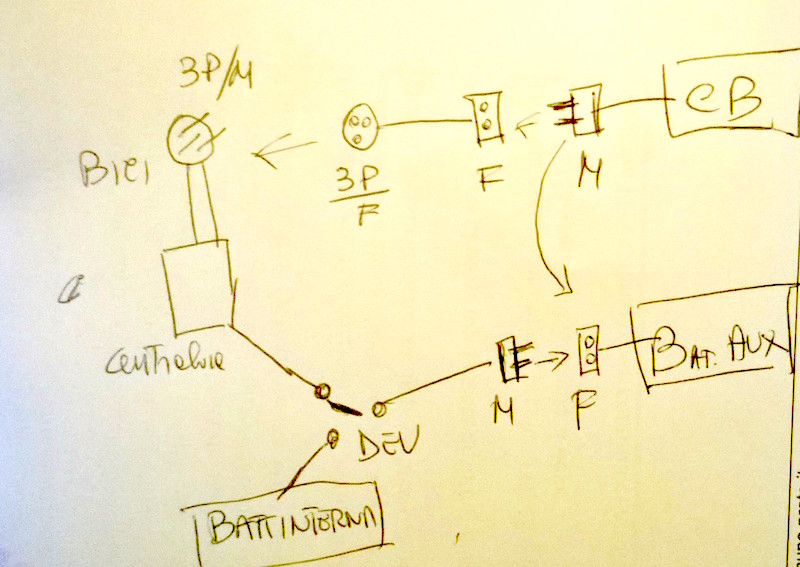 3P/M
CB
BICI
3P
F
F
M
Centralina
BAT. AUX
M
F
DEV
BATT INTERNA